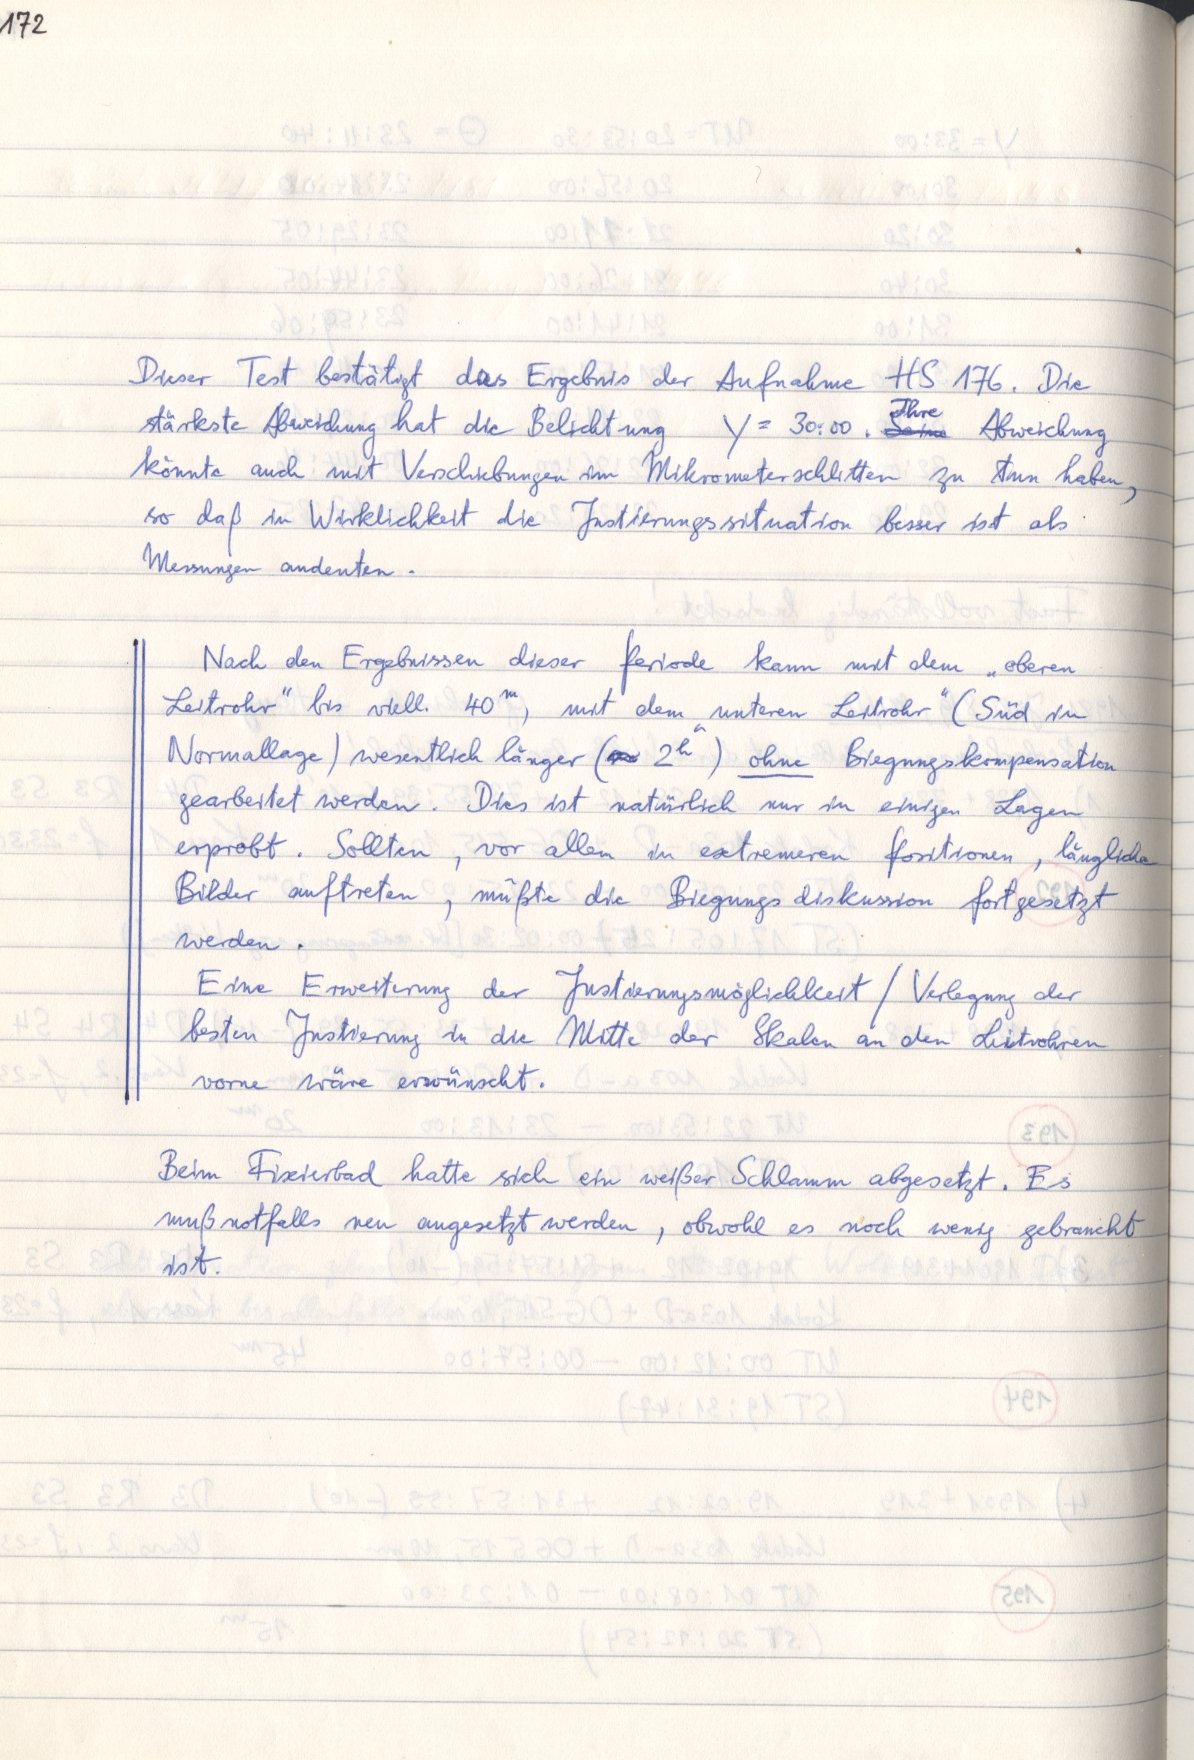 172
Dieser Test bestätigt das Ergebnis der Aufnahme HS 176. Die
stärkste Abweichung hat die Belichtung Y = 30:00. Ihre Abweichung
könnte auch mit Verschiebungen im Mikrometerschlitten zu tun haben,
so daß in Wirklichkeit die Justierungssituation besser ist als
Messungen andeuten.
Nach den Ergebnissen dieser Periode kann mit dem „oberen
Leitrohr“ bis viell. 40ᵐ, mit dem „unteren Leitrohr“ (Süd in
Normallage) wesentlich länger (2ʰ) ohne Biegungskompensation
gearbeitet werden. Dies ist natürlich nur in einigen Lagen
erprobt. Sollten, vor allem in extremeren Positionen, längliche
Bilder auftreten, müßte die Biegungsdiskussion fortgesetzt
werden.
Eine Erweiterung der Justierungsmöglichkeit / Verlegung der
besten Justierung in die Mitte der Skalen an den Leitrohren
vorne wäre erwünscht.
Beim Fixierbad hatte sich ein weißer Schlamm abgesetzt. Es
muß notfalls neu angesetzt werden, obwohl es noch wenig gebraucht
ist.